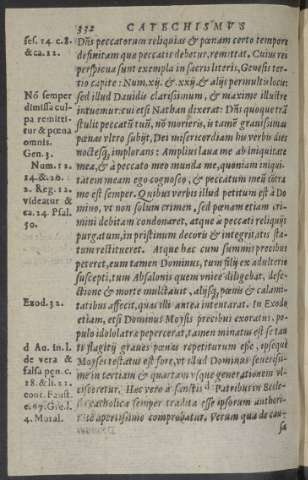 332 CATECHISMVS
ses. 14. c. 8.
& ca. 12.
Nō semper
dimissa cul-
pa remitti-
tur & pœna
omnis.
Gen. 3.
Num. 12.
14. & 20.
2. Reg. 12.
videatur &
ca. 24. Psal.
50.
Exod. 32.
d Au. in. l.
de vera &
falsa pen. c.
18. & li. 22.
cont. Faust.
c. 67. Gre. l.
4. Moral.
Dñs peccatorum reliquias & pœnam certo tempore
definitam quæ peccatis debetur, remittat. Cuius rei
perspicua sunt exempla in sacris literis, Genesis ter-
tio capite: Num. xij. & xx. & alijs permultis locis:
sed illud Dauidis clarissimum, & maxime illustre
intuemur: cui etsi Nathan dixerat: Dñs quoque trā
stulit peccatū tuū, nō morieris, is tamē grauissimas
pœnas vltro subijt, Dei misericordiam his verbis dies
noctesq́; implorans: Amplius laua me ab iniquitate
mea, & à peccato meo munda me, quoniam iniqui-
tatem meam ego cognosco, & peccatum meū cōtra
me est semper. Quibus verbis illud petitum est à Do
mino, vt non solum crimen, sed pœnam etiam cri-
mini debitam condonaret, atque à peccati reliquijs
purgatum, in pristinum decoris & integritatis sta-
tum restitueret. Atque hæc cum summis precibus
peteret, eum tamen Dominus, tum filij ex adulterio
suscepti, tum Absalonis quem vnice diligebat, defe-
ctione & morte mulctauit, alijsq́; pœnis & calami-
tatibus affecit, quas illi antea intentarat. In Exodo
etiam, etsi Dominus Moysis precibus exoratus, po-
pulo idololatræ pepercerat, tamen minatus est se tan
ti flagitij graues pœnas repetiturum esse, ipseque
Moyses testatus est fore, vt illud Dominus seuerissi-
me in tertiam & quartam vsque generationem vl-
cisceretur. Hæc vero à sanctis d Patribus in Eccle-
sia catholica semper tradita esse ipsorum authori-
tate apertissimo comprobatur. Verum qua de cau-
sa